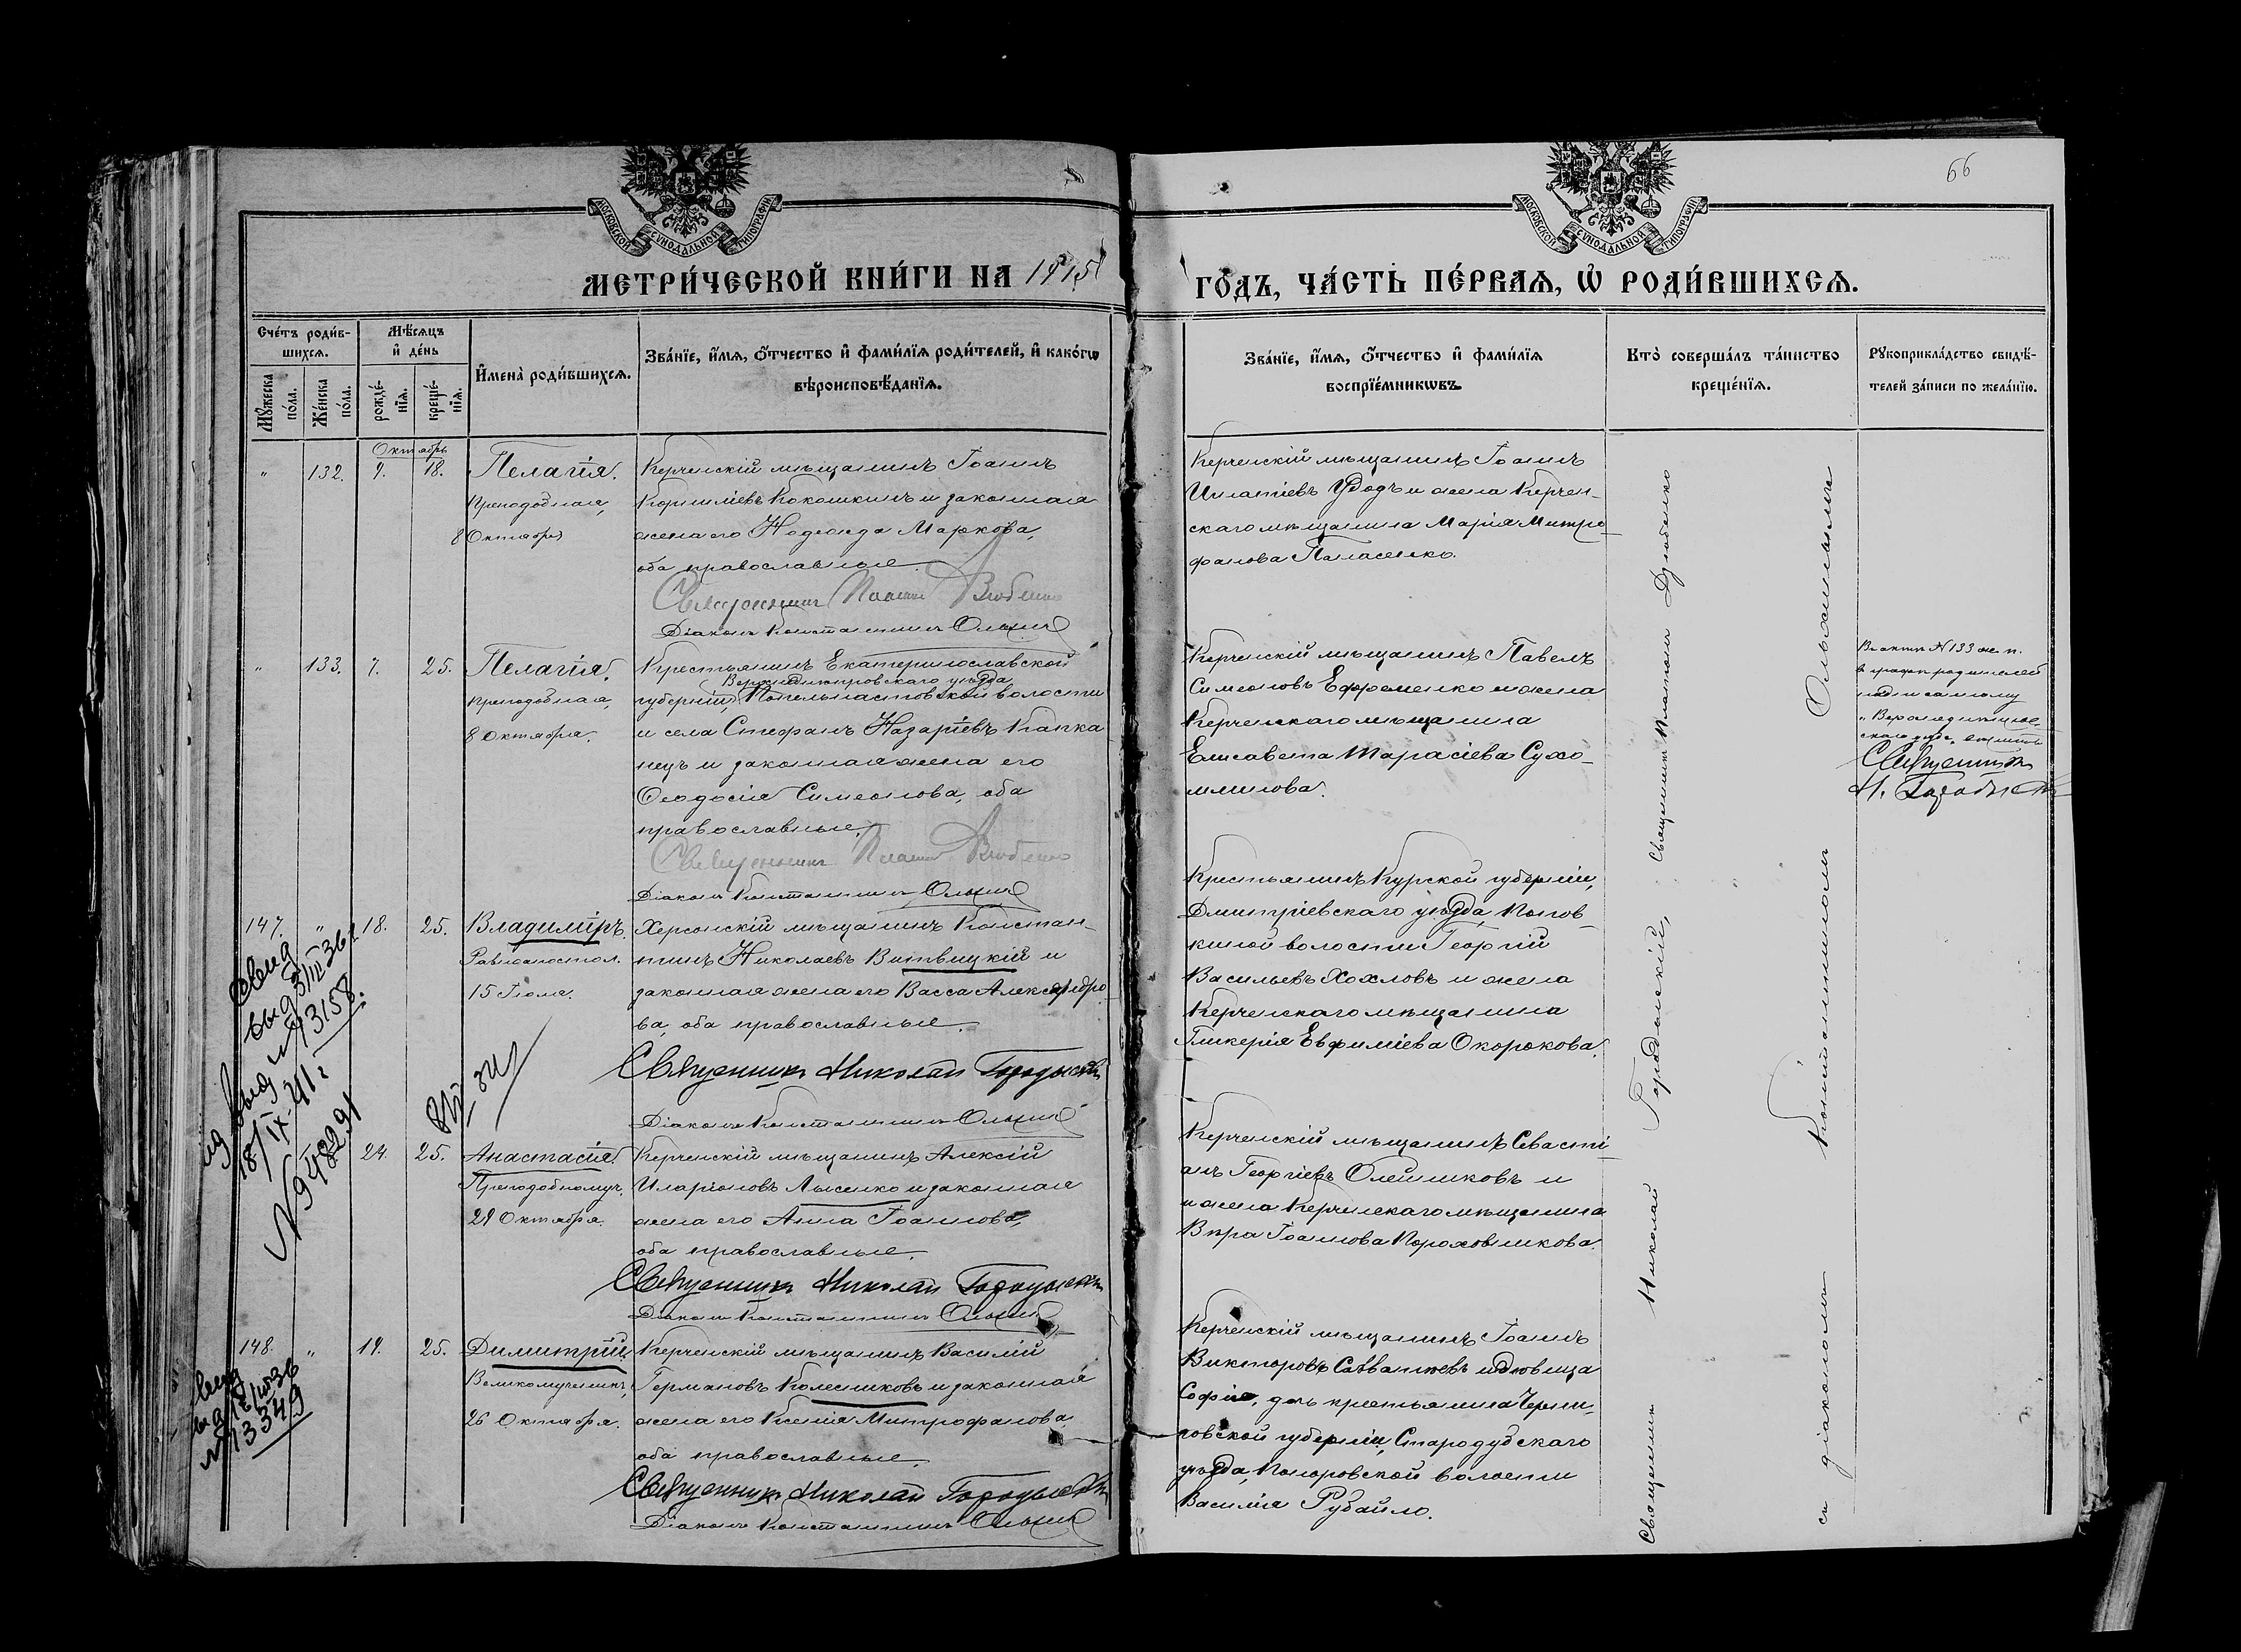 66
МОСКОВСКОЙ СѴНОДАЛЬНОЙ ТИПОГРАФІИ
МОСКОВСКОЙ СѴНОДАЛЬНОЙ ТИПОГРАФІИ
МЕТРИ́ЧЕСКОЙ КНИ́ГИ НА 1915
ГО́ДЪ, ЧА́СТЬ ПЕ́РВАѦ, Ѡ҆ РОДИ́ВШИХСѦ.
Сче́тъ роди́в-
шихсѧ.
Мꙋ́жеска по́ла.
Же́нска по́ла.
Мѣ́сѧцъ
и҆ де́нь
рожде́-
нїѧ.
креще́-
нїѧ.
И҆мена̀ роди́вшихсѧ.
Зва́нїе, и҆́мѧ, ѻ҆́тчество и҆ фами́лїѧ роди́телей, и҆ како́гѡ
вѣроисповѣ́данїѧ.
Зва́нїе, и҆́мѧ, ѻ҆́тчество и҆ фами́лїѧ
воспрїе́мникѡвъ.
Кто̀ соверша́лъ та́инство
креще́нїѧ.
Рꙋкоприкла́дство свидѣ́-
телей за́писи по жела́нїю.
Октябрь
" 132. 7. 18. Пелагія.
Преподобная,
8 Октября
Керченскій мѣщанинъ Іоаннъ
Корниліевъ Кокошкинъ и законная
жена его Надежда Маркова,
оба православные.
Священникъ Платонъ
Діаконъ Константинъ
Керченскій мѣщанинъ Іоаннъ
Игнатіевъ Удодъ и жена Керчен-
скаго мѣщанина Марія Митро-
фанова Панасенко.
" 133. 7. 25. Пелагія.
преподобная,
8 Октября.
Крестьянинъ Екатеринославской
Верхнеднѣпровскаго уѣзда
губерніи, Попельнастовской волости
и села Стефанъ Назаріевъ Капка
нецъ и законная жена его
Ѳеодосія Симеонова, оба
православные.
Священникъ Платонъ
Діаконъ Константинъ
Керченскій мѣщанинъ Павелъ
Симеоновъ Ефременко и жена
Керченскаго мѣщанина
Елисавета Тарасіева Сухо-
млинова.
В актѣ N 133 ж. п.
в графѣ родителей
Священникъ
Н.
147. " 18. 25. Владиміръ.
Равноапостол.
15 Іюля.
Херсонскій мѣщанинъ Констан-
тинъ Николаевъ Витвицкій и
законная жена его Васса Александро
ва, оба православные.
Священникъ Николай Городынскій
Діаконъ Константинъ
Крестьянинъ Курской губерніи,
Дмитріевскаго уѣзда, Попов-
киной волости Георгій
Васильевъ Хохловъ и жена
Керченскаго мѣщанина
Гликерія Евфиміева Окорокова.
N 13158.
24. 25. Анастасія.
Преподобномуч.
29 Октября.
Керченскій мѣщанинъ Алексій
Иларіоновъ Лысенко и законная
жена его Анна Іоаннова,
оба православные.
Священникъ Николай Городынскій
Діаконъ Константинъ
Керченскій мѣщанинъ Севасті-
анъ Георгіевъ Олейниковъ и
и жена Керченскаго мѣщанина
Вѣра Іоаннова Пороховникова.
148. " 19. 25. Димитрій.
Великомученикъ,
26 Октября.
Керченскій мѣщанинъ Василій
Германовъ Колесниковъ и законная
жена его Ксенія Митрофанова,
оба православные.
Священникъ Николай Городынскій
Діаконъ Константинъ
Керченскій мѣщанинъ Іоаннъ
Викторовъ Савватѣевъ и дѣвица
Софія, дочь крестьянина Черни-
говской губерніи, Стародубскаго
уѣзда, Понуровской волости
Василія Рубайло.
N 13349
Священникъ Николай Городынскій,
Священникъ Платонъ
съ діакономъ Константиномъ